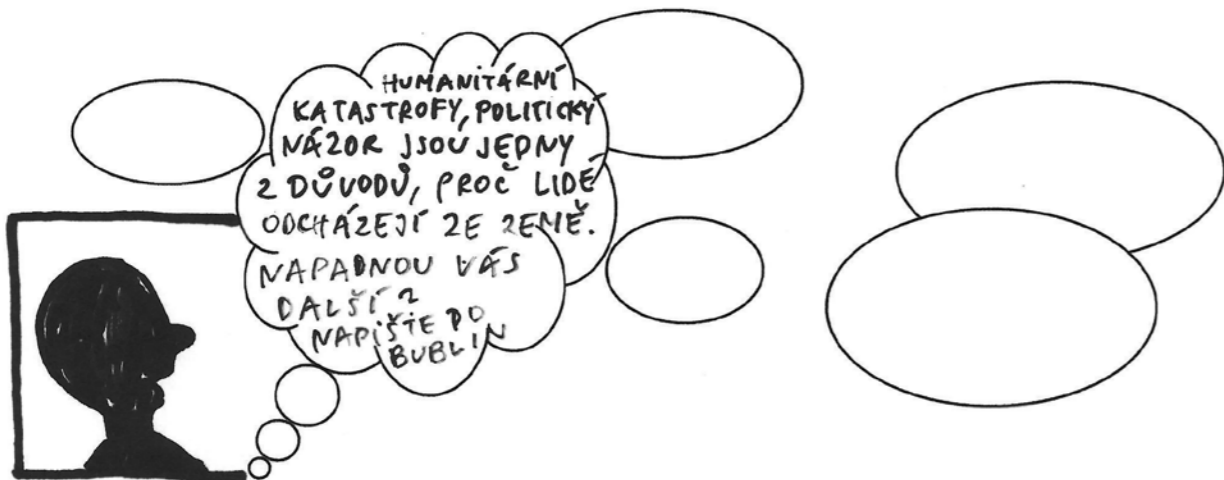 HUMANITÁRNÍ
KATASTROFY, POLITICKÝ
NÁZOR JSOU JEDNY
Z DŮVODŮ, PROČ LIDÉ
ODCHÁZEJÍ ZE ZEMĚ.
NAPADNOU VÁS
DALŠÍ?
NAPIŠTE DO
BUBLIN